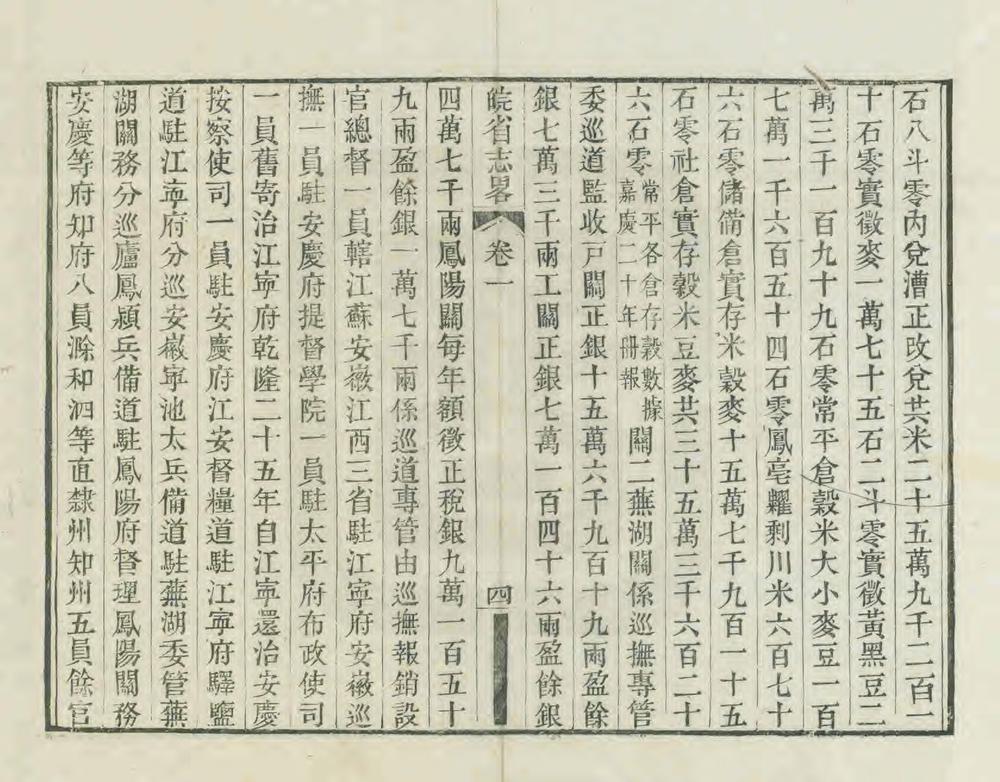 石八斗零內兌漕正改兌共米二十五萬九千二百一
十石零實徵麥一萬七十五石二斗零實徵黃黑豆二
萬三千一百九十九石零常平倉穀米大小麥豆一百
七萬一千六百五十四石零鳳亳糶剩川米六百七十
六石零儲備倉實存米穀麥十五萬七千九百一十五
石零社倉實存穀米豆麥共三十五萬三千六百二十
六石零常平各倉存穀數據嘉慶二十年冊報關二蕪湖關係巡撫專管
委巡道監收戸關正銀十五萬六千九百十九兩盈餘
銀七萬三千兩工關正銀七萬一百四十六兩盈餘銀
皖省志畧 卷一 四
四萬七千兩鳳陽關每年額徵正稅銀九萬一百五十
九兩盈餘銀一萬七千兩係巡道專管由巡撫報銷設
官總督一員轄江蘇安徽江西三省駐江寧府安徽巡
撫一員駐安慶府提督學院一員駐太平府布政使司
一員舊寄治江寧府乾隆二十五年自江寧還治安慶
按察使司一員駐安慶府江安督糧道駐江寧府驛鹽
道駐江寧府分巡安徽寧池太兵備道駐蕪湖委管蕪
湖關務分巡廬鳳潁兵備道駐鳳陽府督理鳳陽關務
安慶等府知府八員滁和泗等直隸州知州五員餘官